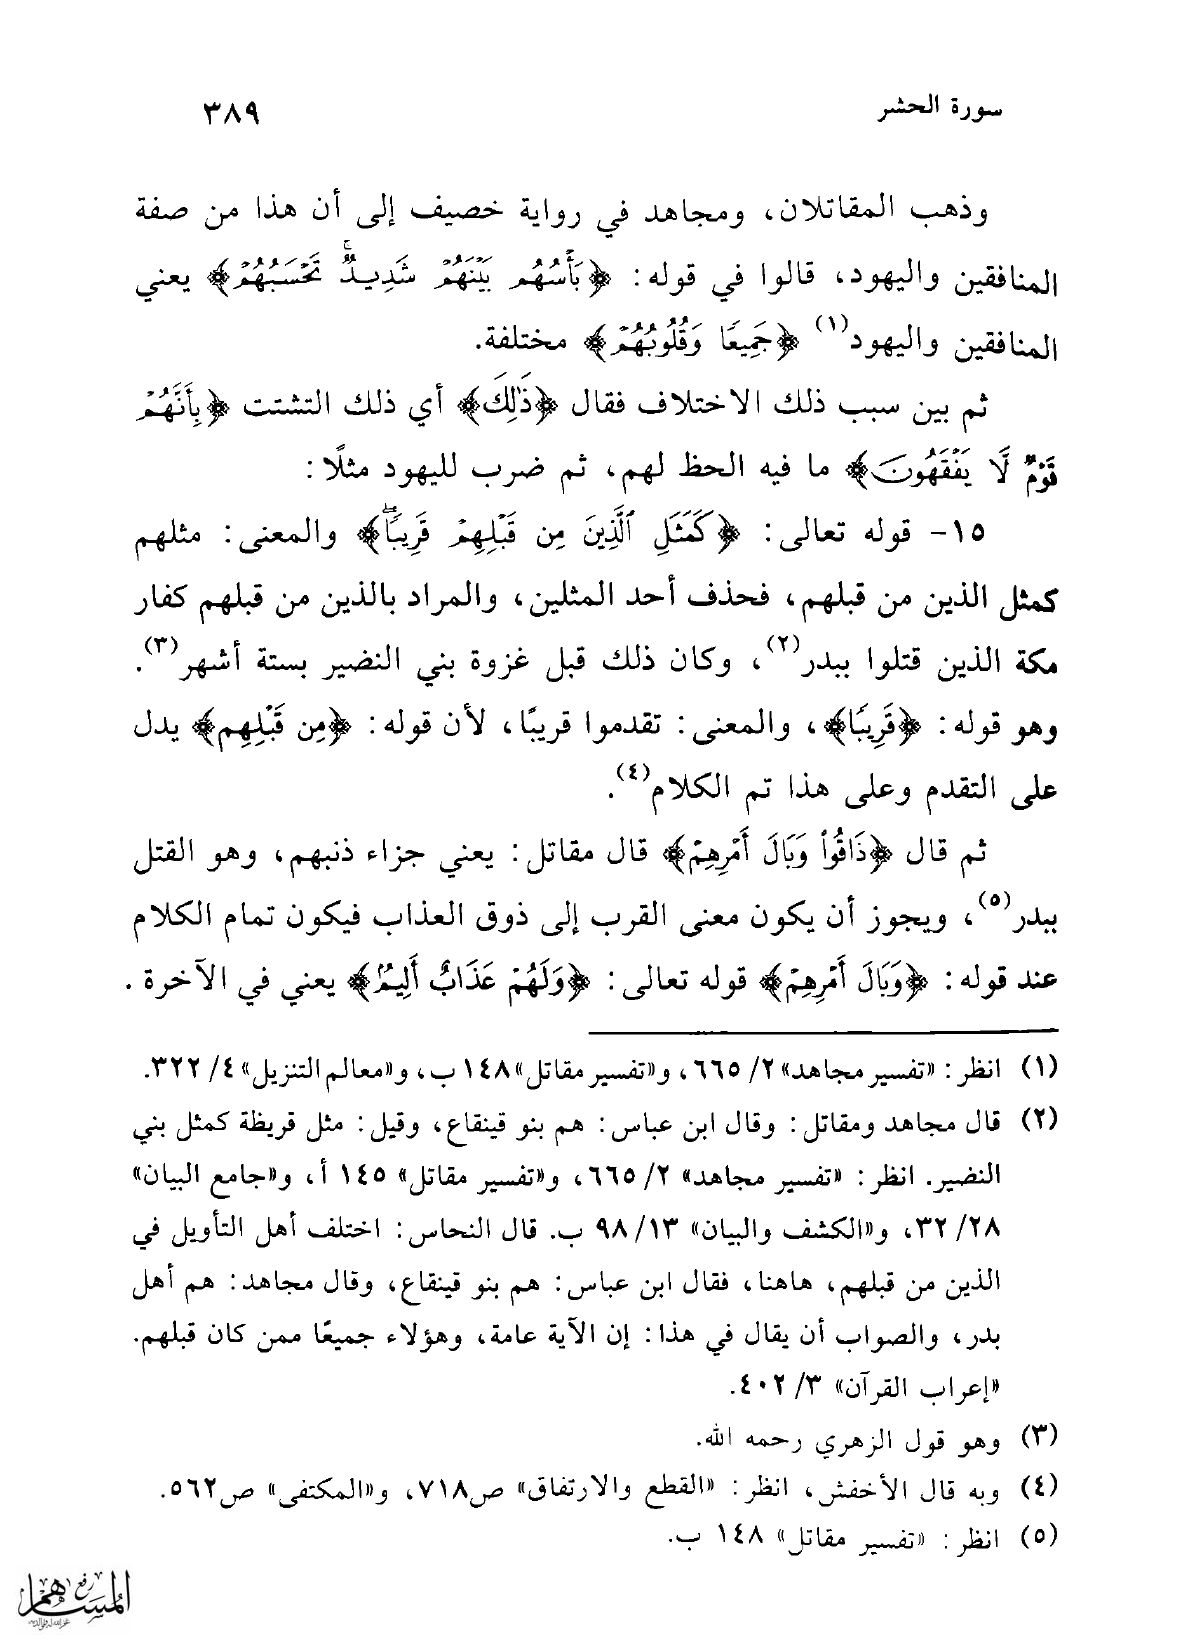 سورة الحشر ٣٨٩
وذهب المقاتلان، ومجاهد في رواية خصيف إلى أن هذا من صفة
المنافقين واليهود، قالوا في قوله: ﴿بَأْسُهُم بَيْنَهُمْ شَدِيدٌۚ تَحْسَبُهُمْ﴾ يعني
المنافقين واليهود(١) ﴿جَمِيعًا وَقُلُوبُهُمْ﴾ مختلفة.
ثم بين سبب ذلك الاختلاف فقال ﴿ذَٰلِكَ﴾ أي ذلك التشتت ﴿بِأَنَّهُمْ
قَوْمٌ لَّا يَفْقَهُونَ﴾ ما فيه الحظ لهم، ثم ضرب لليهود مثلًا:
١٥- قوله تعالى: ﴿كَمَثَلِ ٱلَّذِينَ مِن قَبْلِهِمْ قَرِيبًاۖ﴾ والمعنى: مثلهم
كمثل الذين من قبلهم، فحذف أحد المثلين، والمراد بالذين من قبلهم كفار
مكة الذين قتلوا ببدر(٢)، وكان ذلك قبل غزوة بني النضير بستة أشهر(٣).
وهو قوله: ﴿قَرِيبًا﴾، والمعنى: تقدموا قريبًا، لأن قوله: ﴿مِن قَبْلِهِم﴾ يدل
على التقدم وعلى هذا تم الكلام(٤).
ثم قال ﴿ذَاقُوا۟ وَبَالَ أَمْرِهِمْ﴾ قال مقاتل: يعني جزاء ذنبهم، وهو القتل
ببدر(٥)، ويجوز أن يكون معنى القرب إلى ذوق العذاب فيكون تمام الكلام
عند قوله: ﴿وَبَالَ أَمْرِهِمْ﴾ قوله تعالى: ﴿وَلَهُمْ عَذَابٌ أَلِيمٌ﴾ يعني في الآخرة.
(١) انظر: «تفسير مجاهد» ٢/ ٦٦٥، و«تفسير مقاتل» ١٤٨ ب، و«معالم التنزيل» ٤/ ٣٢٢.
(٢) قال مجاهد ومقاتل: وقال ابن عباس: هم بنو قينقاع، وقيل: مثل قريظة كمثل بني
النضير. انظر: «تفسير مجاهد» ٢/ ٦٦٥، و«تفسير مقاتل» ١٤٥ أ، و«جامع البيان»
٢٨/ ٣٢، و«الكشف والبيان» ١٣/ ٩٨ ب. قال النحاس: اختلف أهل التأويل في
الذين من قبلهم، هاهنا، فقال ابن عباس: هم بنو قينقاع، وقال مجاهد: هم أهل
بدر، والصواب أن يقال في هذا: إن الآية عامة، وهؤلاء جميعًا ممن كان قبلهم.
«إعراب القرآن» ٣/ ٤٠٢.
(٣) وهو قول الزهري رحمه الله.
(٤) وبه قال الأخفش، انظر: «القطع والارتفاق» ص٧١٨، و«المكتفى» ص٥٦٢.
(٥) انظر: «تفسير مقاتل» ١٤٨ ب.